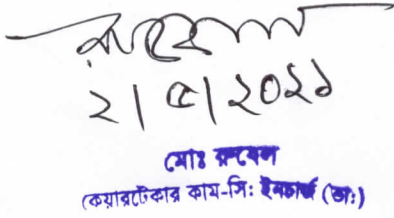 রুবেল
২|৫|২০২১
মোঃ রুবেল
কেয়ারটেকার কাম-সি: ইনচার্জ (ভা:)